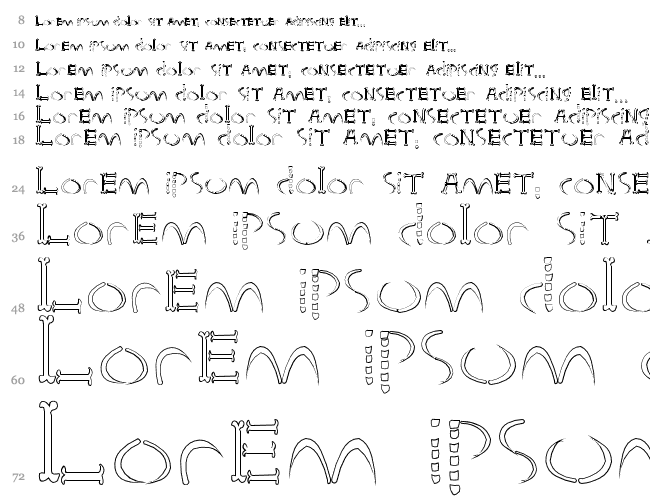 8 Lorem ipsum dolor sit amet, consectetuer adipiscing elit...
10 Lorem ipsum dolor sit amet, consectetuer adipiscing elit...
12 Lorem ipsum dolor sit amet, consectetuer adipiscing elit...
14 Lorem ipsum dolor sit amet, consectetuer adipiscing elit...
16 Lorem ipsum dolor sit amet, consectetuer adipiscing
18 Lorem ipsum dolor sit amet, consectetuer ad
24 Lorem ipsum dolor sit amet, conse
36 Lorem ipsum dolor sit
48 Lorem ipsum dolo
60 Lorem ipsum
72 Lorem ipsum